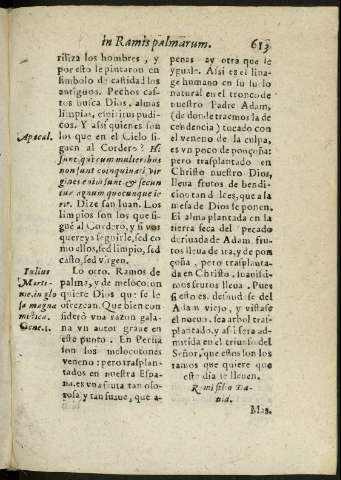 in Ramis palmarum. 613
riliza los hombres, y
por esto le pintaron en
simbolo de castidad los
antiguos. Pechos cas-
tos busca Dios, almas
limpias, espiritus pudi-
cos. Y assi quienes son
los que en el Cielo si-
guen al Cordero? Hi
sunt, qui cum mulieribus
non sunt coinquinati, vir
gines enim sunt & secun
tur agnum quocunque ie-
rit. Dize san Iuan. Los
limpios son los que si-
gué al Cordero, y si vos
quereys seguirle, sed co
mo ellos, sed limpio, sed
casto, sed virgen.
Lo otro. Ramos de
palma, y de melocoton
quiere Dios que se le
ofrezcan. Que bien con
sideró vna razon gala-
na vn autor graue en
este punto. En Persia
son los melocotones
veneno: pero trasplan-
tados en nuestra Espa-
ña, es vna fruta tan olo-
rosa, y tan suaue, que a-
Apocal.
Iulius
Marte-
me. in glo
sa magna
Gene. 1.
penas ay otra que se
yguale. Assi es el lina-
ge humano en su suelo
natural en el tronco de
nuestro Padre Adam,
(de donde traemos la de
cendencia) tocado con
el veneno de la culpa,
es vn poco de ponçoña:
pero trasplantado en
Christo nuestro Dios,
lleua frutos de bendi-
cion tan dulces, que a la
mesa de Dios se ponen.
El alma plantada en la
tierra seca del pecado
deriuada de Adam, fru-
tos lleua de ira, y de pon
çoña, pero trasplanta-
da en Christo, suauissi-
mos frutos lleua. Pues
si esto es, desnudese del
Adam viejo, y vistase
el nueuo, sea arbol tras-
plantado, y assi sera ad-
mitida en el triunfo del
Señor, que estos son los
ramos que quiere que
este dia le lleuen.
Rami filio Da-
uid.
Mas.